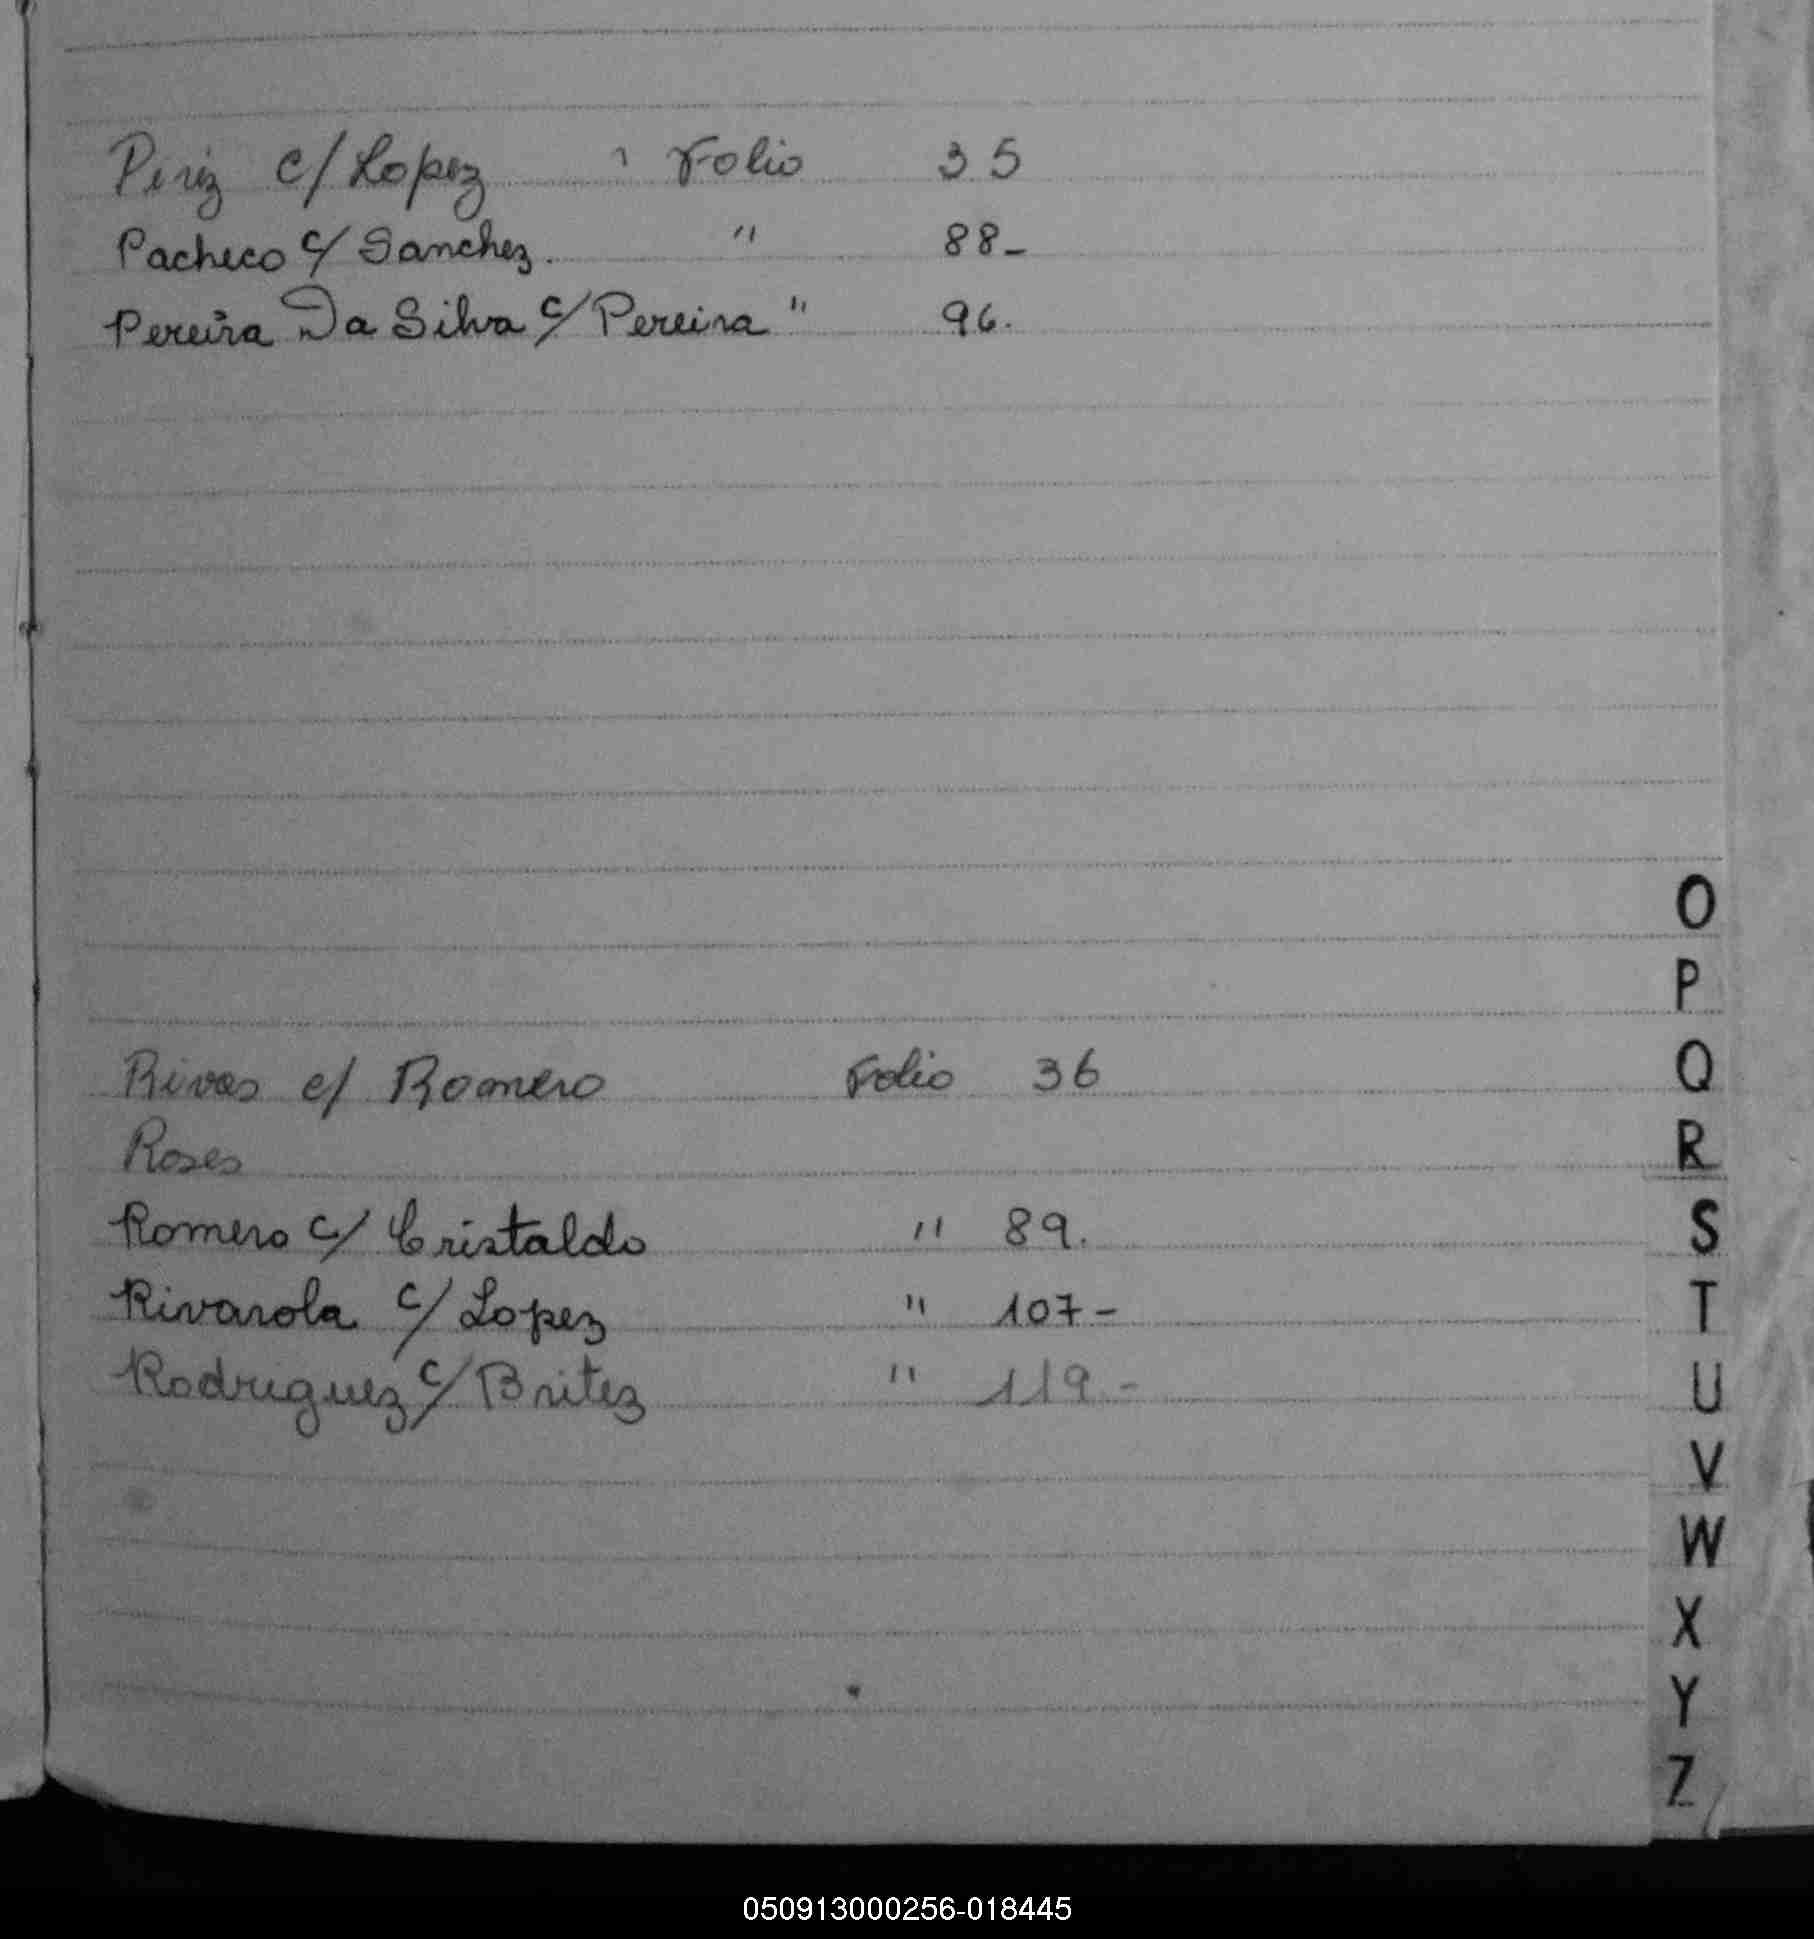 Piriz c/ Lopez Folio 35
Pacheco c/ Sanchez. " 88-
Pereira Da Silva c/ Pereira " 96.
O
P
Q
Rivas c/ Romero Folio 36
R
Roses
S
Romero c/ Cristaldo " 89.
T
Rivarola c/ Lopez " 107-
U
Rodriguez c/ Britez " 119-
V
W
X
Y
Z
050913000256-018445